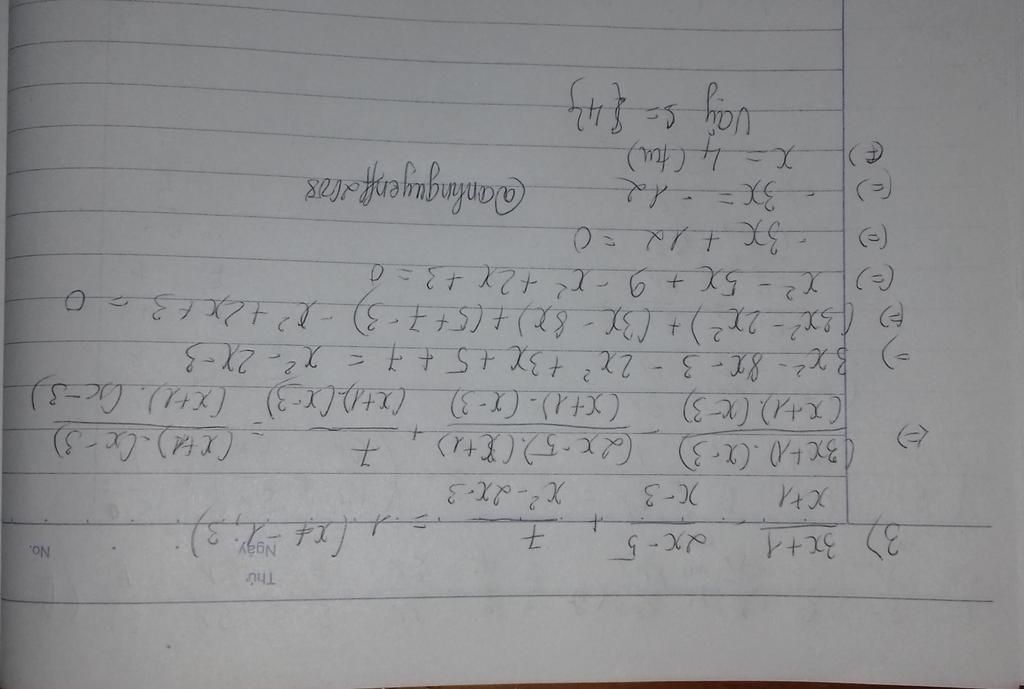 Thứ
Ngày
No.
3) 3x+1/x+1 - 2x-5/x-3 + 7/x²-2x-3 = 1 (x ≠ -1, 3)
(=) (3x+1).(x-3)/(x+1).(x-3) - (2x-5).(x+1)/(x+1).(x-3) + 7/(x+1).(x-3) = (x+1).(x-3)/(x+1).(x-3)
=) 3x² - 8x - 3 - 2x² + 3x + 5 + 7 = x² - 2x - 3
(=) (3x² - 2x²) + (3x - 8x) + (5 + 7 - 3) - x² + 2x + 3 = 0
(=) x² - 5x + 9 - x² + 2x + 3 = 0
(=) - 3x + 12 = 0
(=) - 3x = - 12
@anhnguyenff2008
(=) x = 4 (tm)
Vậy S = {4}